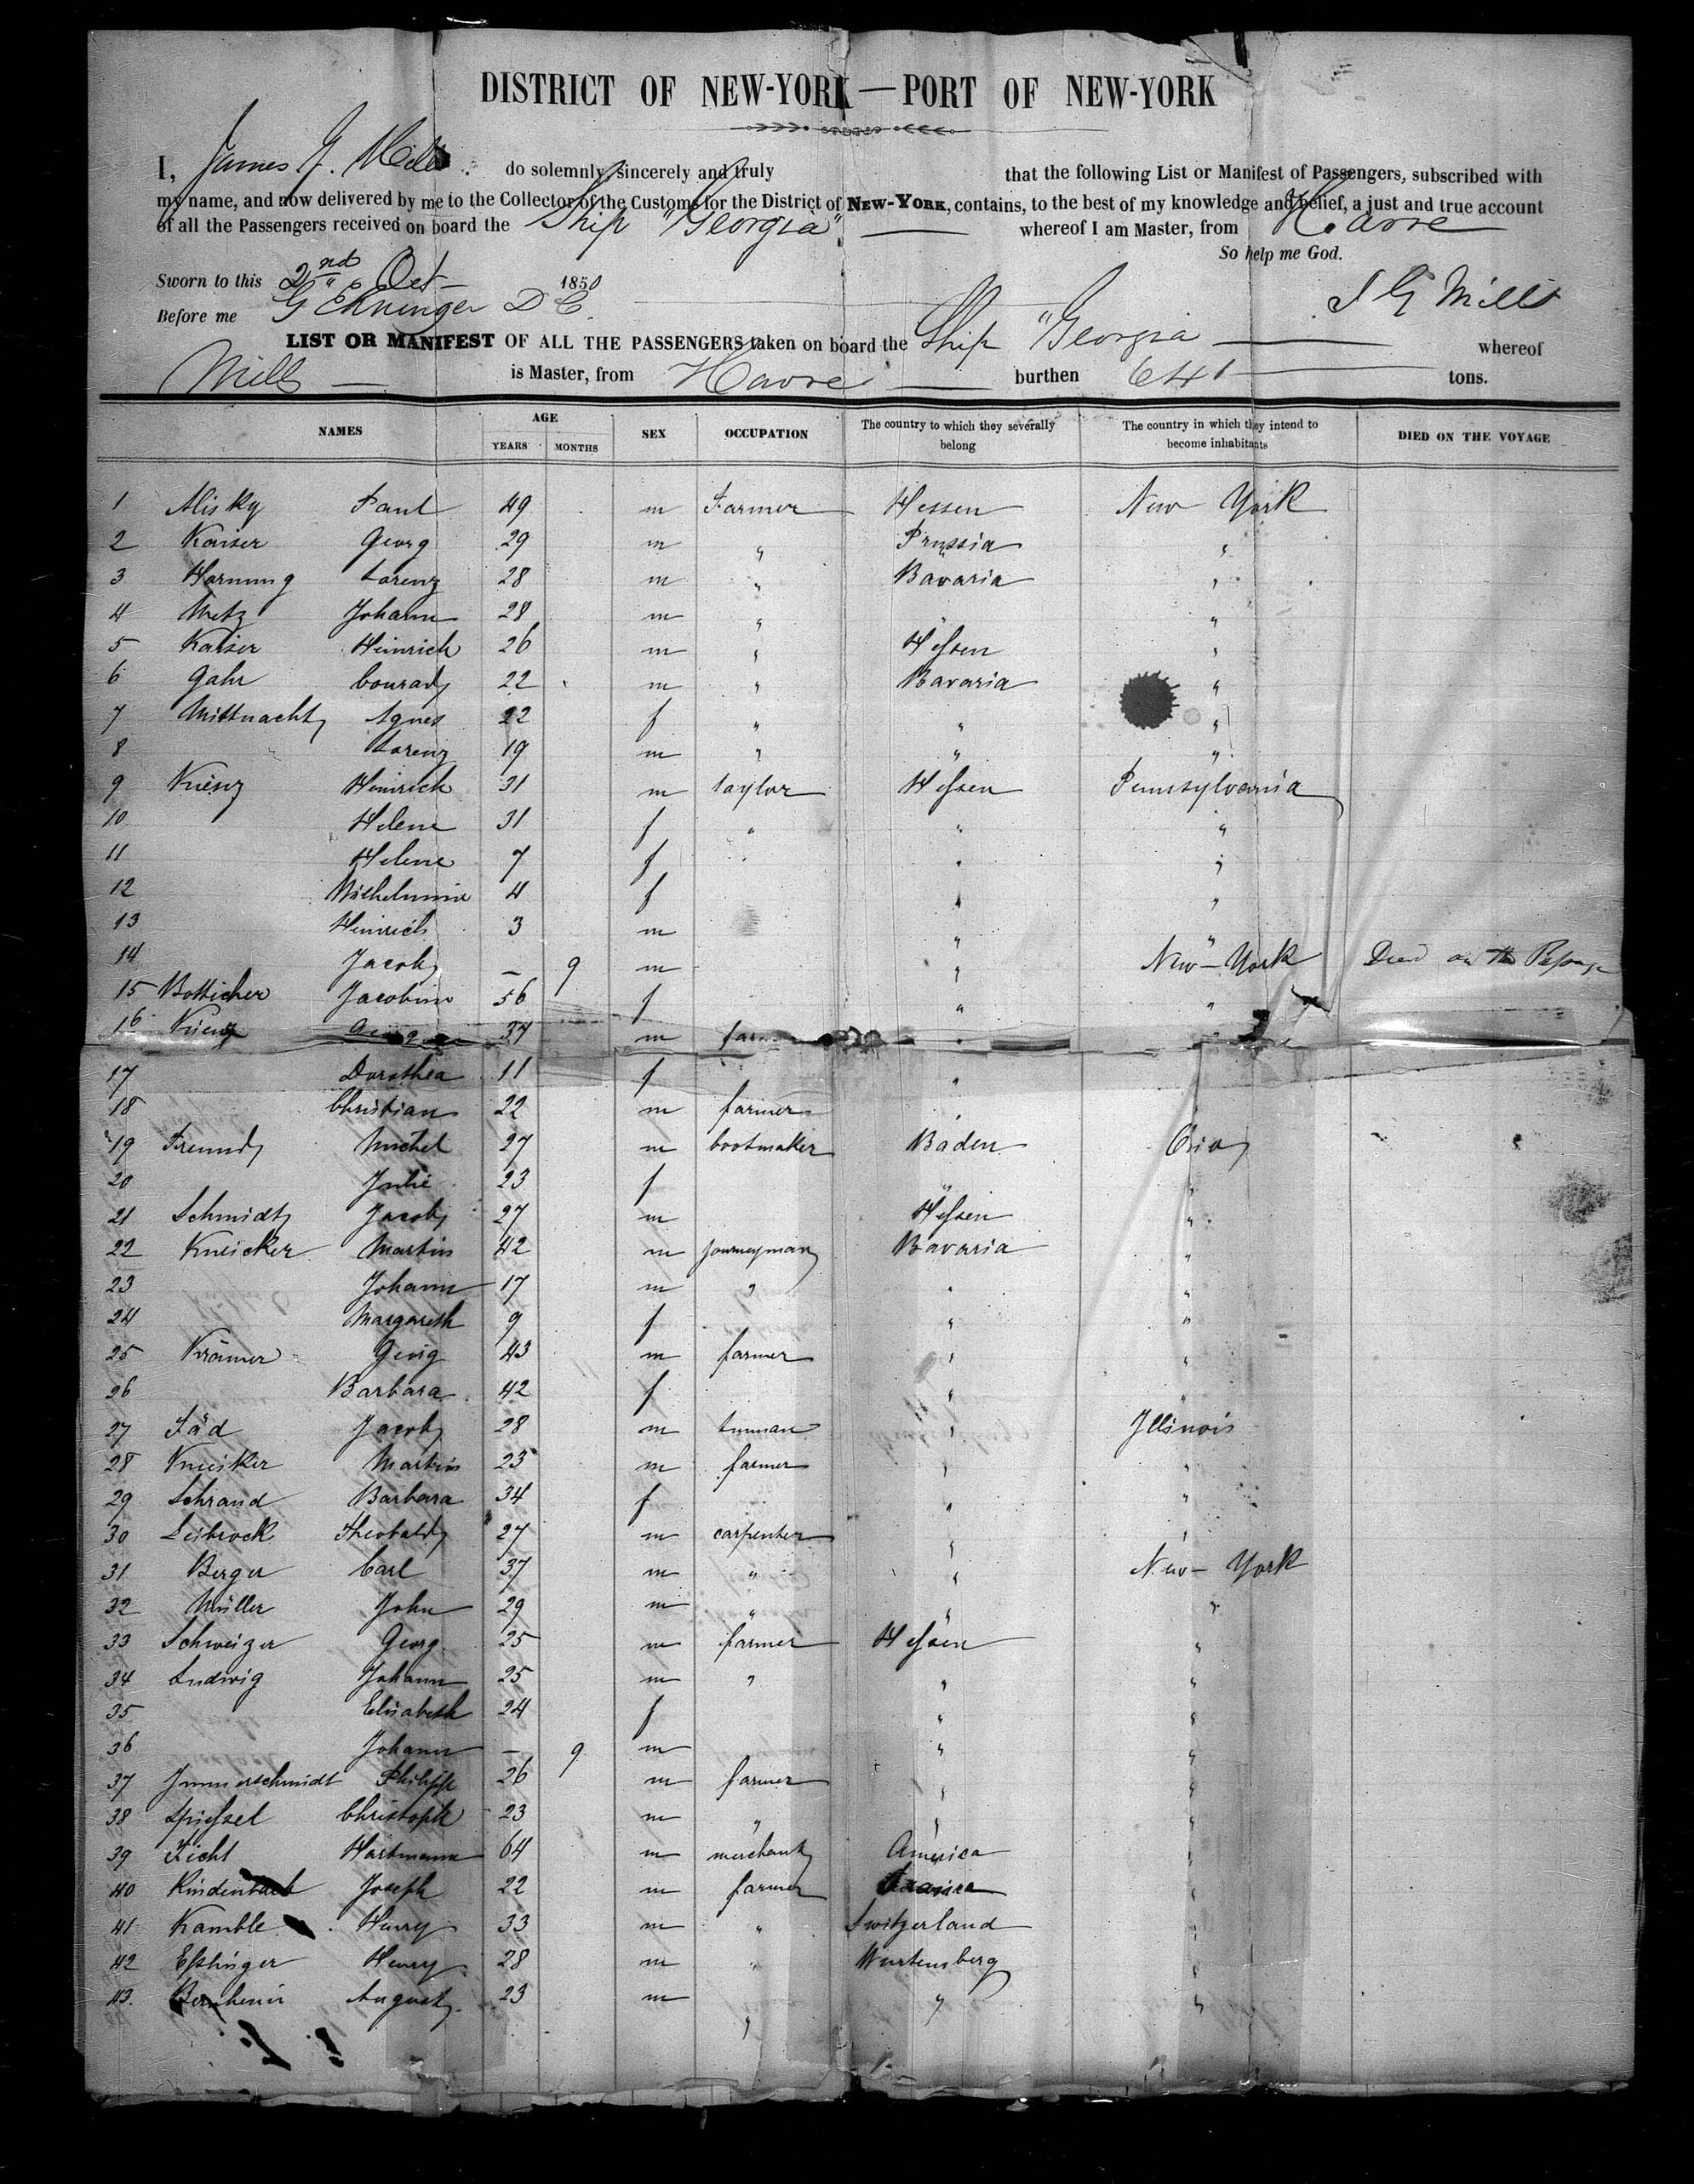 DISTRICT OF NEW-YORK — PORT OF NEW-YORK
I, James G. Mills do solemnly, sincerely and truly that the following List or Manifest of Passengers, subscribed with
my name, and now delivered by me to the Collector of the Customs for the District of NEW-YORK, contains, to the best of my knowledge and belief, a just and true account
of all the Passengers received on board the Ship "Georgia" whereof I am Master, from Havre
So help me God.
Sworn to this 2nd Oct 1850
J G Mills
Before me G Ehninger D C.
LIST OR MANIFEST OF ALL THE PASSENGERS taken on board the Ship "Georgia whereof
Mills is Master, from Havre burthen 641 tons.
NAMES AGE YEARS MONTHS SEX OCCUPATION The country to which they severally belong The country in which they intend to become inhabitants DIED ON THE VOYAGE
1 Misky Paul 49 m Farmer Hessen New York
2 Kaiser Georg 29 m " Prussia "
3 Hornung Lorenz 28 m " Bavaria "
4 Metz Johann 28 m " " "
5 Kaiser Heinrich 26 m " Hessen "
6 Gahr Conrad 22 m " Bavaria "
7 Mittnacht Agnes 22 f " " "
8 Lorenz 19 m " " "
9 Kuenz Heinrich 31 m taylor Hessen Pennsylvania
10 Helene 31 f " " "
11 Helene 7 f " "
12 Wilhelmina 4 f " "
13 Heinrich 3 m " "
14 Jacob — 9 m " New-York Died on the Passage
15 Botticher Jacobine 56 f " "
16 Kuenz Georg 37 m " "
17 Dorothea 11 f "
18 Christian 22 m farmer " "
19 Freund Michel 27 m bootmaker Baden Ohio
20 Julie 23 f " "
21 Schmidt Jacob 27 m Hessen "
22 Kneicker Martin 42 m journeyman Bavaria "
23 Johann 17 m " " "
24 Margareth 9 f " "
25 Krämer Georg 43 m farmer " "
26 Barbara 42 f " "
27 Fäd Jacob 28 m " Illinois
28 Kneicker Martin 23 m farmer " "
29 Schrand Barbara 34 f " "
30 Leibrock Theobald 27 m carpenter " "
31 Berger Carl 37 m " " New-York
32 Müller John 29 m " " "
33 Schweizer Georg 25 m farmer Hessen "
34 Ludwig Johann 25 m " " "
35 Elisabeth 24 f " "
36 Johann — 9 m " "
37 Immerschmidt Philipp 26 m farmer " "
38 Spiessel Christoph 23 m " " "
39 Licht Hartmann 64 m merchant America "
40 Joseph 22 m farmer "
41 Kamble Henry 33 m " Switzerland "
42 Esslinger Henry 28 m " Wurtemberg "
43. August 23 m " " "